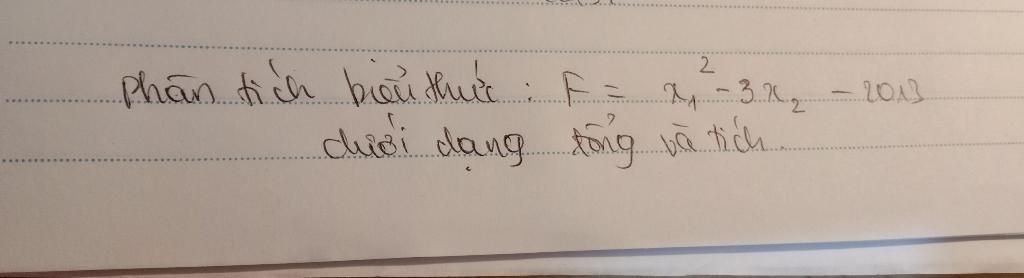 phân tích biểu thức : F = x₁² - 3x₂ - 2013
dưới dạng tổng và tích.